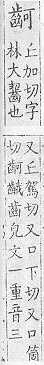 䶗
丘加切字
林大齧也
又丘駕切又口下切又口箇
切䶗䶢齒皃文一重音三